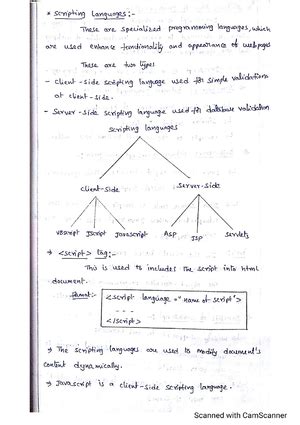 * Scripting Languages:-
These are specialized programming languages, which
are used enhance functionality and appearance of webpages
These are two types
- Client-side scripting language used for simple validations
at client-side.
- Server-side scripting language used for database validation
Scripting languages
Client-side Server-side
VBScript JScript Javascript ASP JSP Servlets
→ <script> tag:-
This is used to includes the script into html
document.
format:- <script language="name of script">
- - - -
</script>
→ The scripting languages are used to modify document's
content dynamically.
→ Javascript is a client-side scripting language.
Scanned with CamScanner